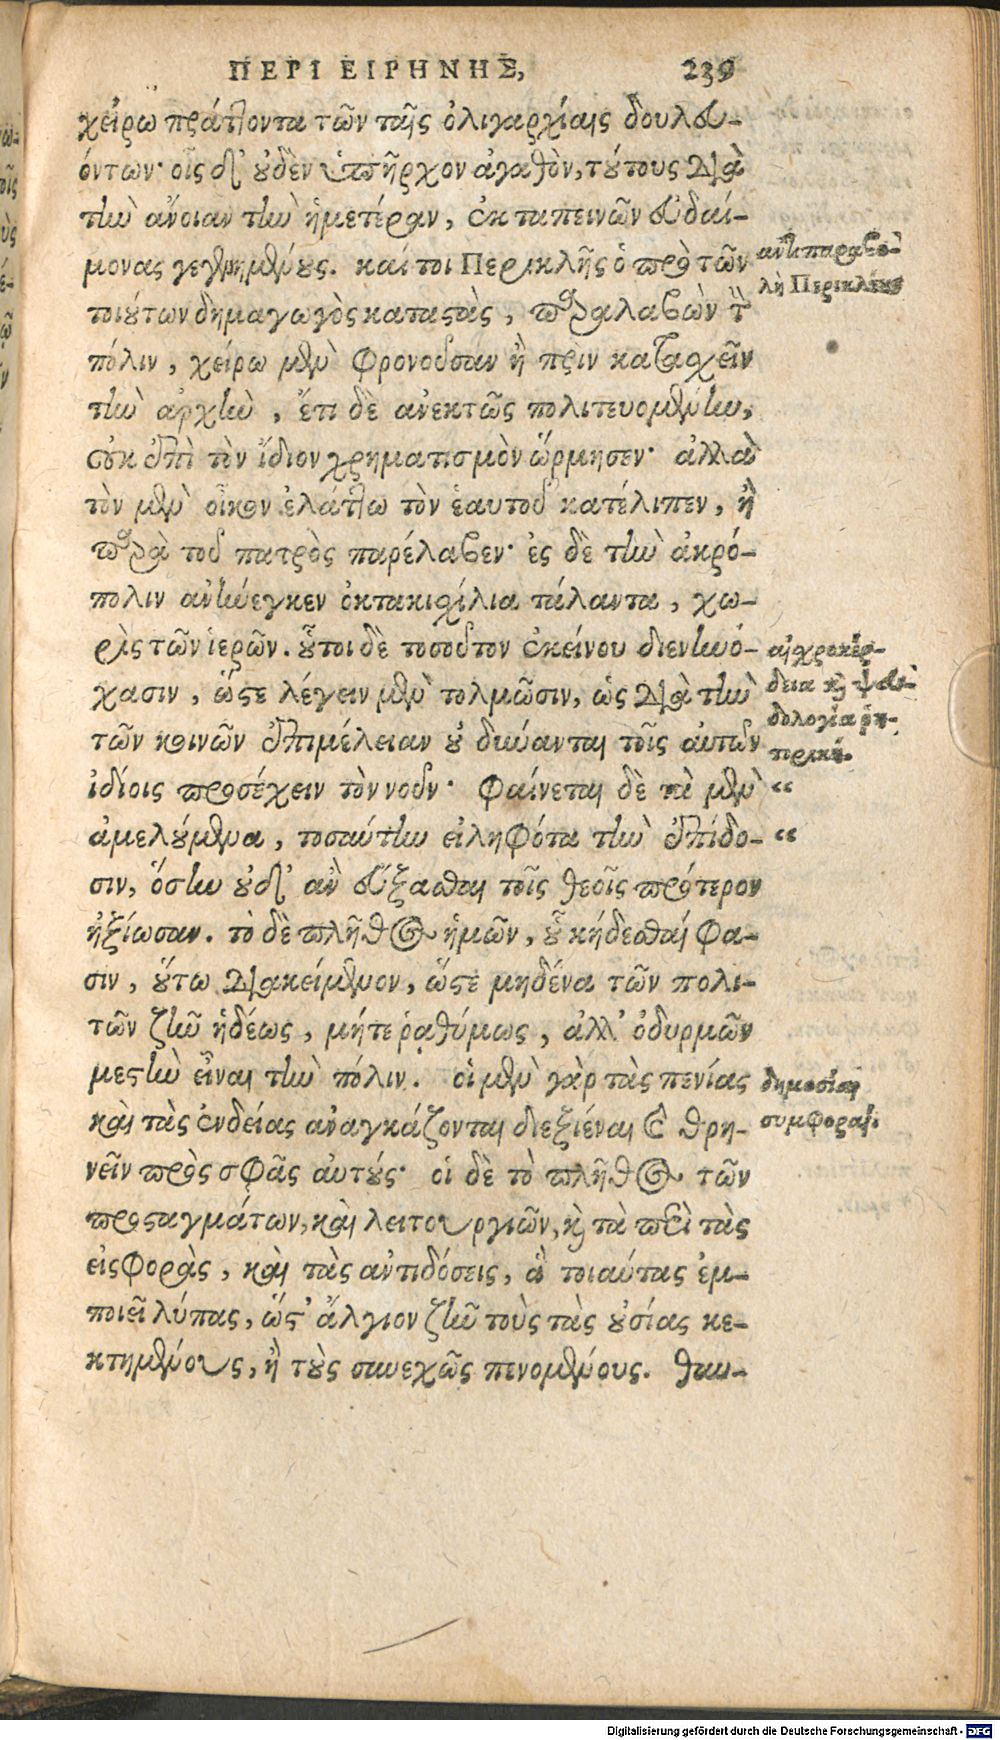 ΠΕΡΙ ΕΙΡΗΝΗΣ, 239
χείρω πράττοντα τῶν ταῖς ὀλιγαρχίαις δουλευ-
όντων· οἷς δ' οὐδὲν ὑπῆρχον ἀγαθὸν, τούτους διὰ
τὴν ἄνοιαν τὴν ἡμετέραν, ἐκ ταπεινῶν εὐδαί-
μονας γεγενημένους. καί τοι Περικλῆς ὁ πρὸ τῶν
ἀντιπαραβο-
λὴ Περικλέους
τοιούτων δημαγωγὸς καταστὰς, παραλαβὼν τὴν
πόλιν, χείρω μὲν φρονοῦσαν ἢ πρὶν κατασχεῖν
τὴν ἀρχὴν, ἔτι δὲ ἀνεκτῶς πολιτευομένην,
οὐκ ἐπὶ τὸν ἴδιον χρηματισμὸν ὥρμησεν· ἀλλὰ
τὸν μὲν οἶκον ἐλάττω τὸν ἑαυτοῦ κατέλιπεν, ἢ
παρὰ τοῦ πατρὸς παρέλαβεν· ἐς δὲ τὴν ἀκρό-
πολιν ἀνήνεγκεν ὀκτακισχίλια τάλαντα, χω-
ρὶς τῶν ἱερῶν. οὗτοι δὲ τοσοῦτον ἐκείνου διενηνό-
χασιν, ὥστε λέγειν μὲν τολμῶσιν, ὡς διὰ τὴν
αἰσχροκέρ-
δεια καὶ ψευ-
δολογία ῥη-
τορική.
τῶν κοινῶν ἐπιμέλειαν οὐ δύνανται τοῖς αὑτῶν
ἰδίοις προσέχειν τὸν νοῦν· φαίνεται δὲ τὰ μὲν “
ἀμελούμενα, τοσαύτην εἰληφότα τὴν ἐπίδο- “
σιν, ὅσην οὐδ' ἂν εὔξασθαι τοῖς θεοῖς πρότερον
ἠξίωσαν. τὸ δὲ πλῆθος ἡμῶν, οὗ κήδεσθαί φα-
σιν, οὕτω διακείμενον, ὥστε μηδένα τῶν πολι-
τῶν ζῆν ἡδέως, μήτε ῥαθύμως, ἀλλ' ὀδυρμῶν
μεστὴν εἶναι τὴν πόλιν. οἱ μὲν γὰρ τὰς πενίας
δημοσίαι
συμφοραί.
καὶ τὰς ἐνδείας ἀναγκάζονται διεξιέναι καὶ θρη-
νεῖν πρὸς σφᾶς αὐτούς· οἱ δὲ τὸ πλῆθος τῶν
προσταγμάτων, καὶ λειτουργιῶν, καὶ τὰ περὶ τὰς
εἰσφορὰς, καὶ τὰς ἀντιδόσεις, ἃ τοιαύτας ἐμ-
ποιεῖ λύπας, ὥστ' ἄλγιον ζῆν τοὺς τὰς οὐσίας κε-
κτημένους, ἢ τοὺς συνεχῶς πενομένους. θαυ-
Digitalisierung gefördert durch die Deutsche Forschungsgemeinschaft - DFG